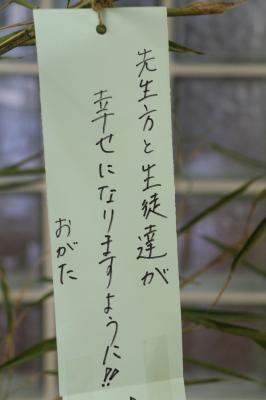 先生方と生徒達が
幸せになりますように!!
おがた